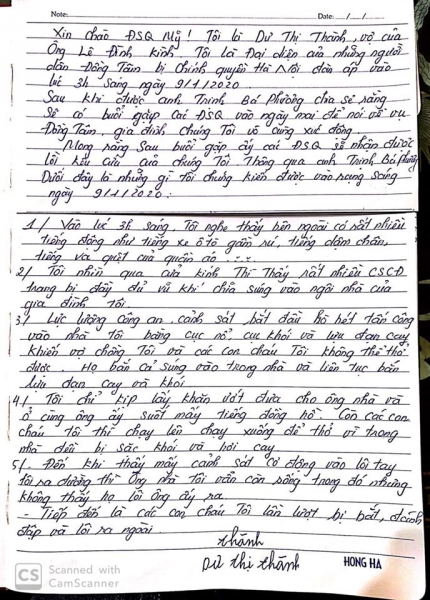 Note: Date: / /
Xin chào ĐSQ Mỹ! Tôi là Dư Thị Thành, vợ của
Ông Lê Đình Kình. Tôi là Đại diện của những người
dân Đồng Tâm bị Chính quyền Hà Nội đàn áp vào
lúc 3h sáng ngày 9/1/2020.
Sau khi được anh Trịnh Bá Phương chia sẻ rằng
Sẽ có buổi gặp Các ĐSQ vào ngày mai để nói về vụ
Đồng Tâm, gia đình chúng Tôi vô cùng xúc động.
Mong rằng Sau buổi gặp ấy các ĐSQ sẽ nhận được
lời kêu cứu của chúng Tôi Thông qua anh Trịnh Bá Phương
Dưới đây là những gì Tôi chứng kiến được vào rạng sáng
ngày 9/1/2020:
1/ Vào lúc 3h sáng, Tôi nghe thấy bên ngoài có rất nhiều
tiếng động như tiếng xe ô tô gầm rú, tiếng dậm chân,
tiếng va quệt của quần áo ....
2/ Tôi nhìn qua cửa kính Thì Thấy rất nhiều CSCĐ
trang bị đầy đủ vũ khí chĩa súng vào ngôi nhà của
gia đình tôi.
3/ Lực lượng công an, cảnh sát bắt đầu hò hét tấn công
vào nhà tôi bằng cục nổ, cục khói và lựu đạn cay
khiến vợ chồng Tôi và các con cháu Tôi không thể thở
được. Họ bắn cả súng vào trong nhà và liên tục bắn
lựu đạn cay và khói
4/ Tôi chỉ kịp lấy khăn ướt đưa cho ông nhà và
ở cùng ông ấy suốt mấy tiếng đồng hồ. Còn các con
cháu Tôi thì chạy lên chạy xuống để thở vì trong
nhà đều bị sặc khói và hơi cay
5/ Đến khi thấy mấy cảnh sát cơ động vào lôi tay
tôi ra đường thì Ông nhà Tôi vẫn còn sống trong đó nhưng
không thấy họ lôi Ông ấy ra.
- Tiếp đến là các con cháu Tôi lần lượt bị bắt, đánh
đập và lôi ra ngoài
Thành
Dư Thị Thành
HONG HA
CS Scanned with
CamScanner